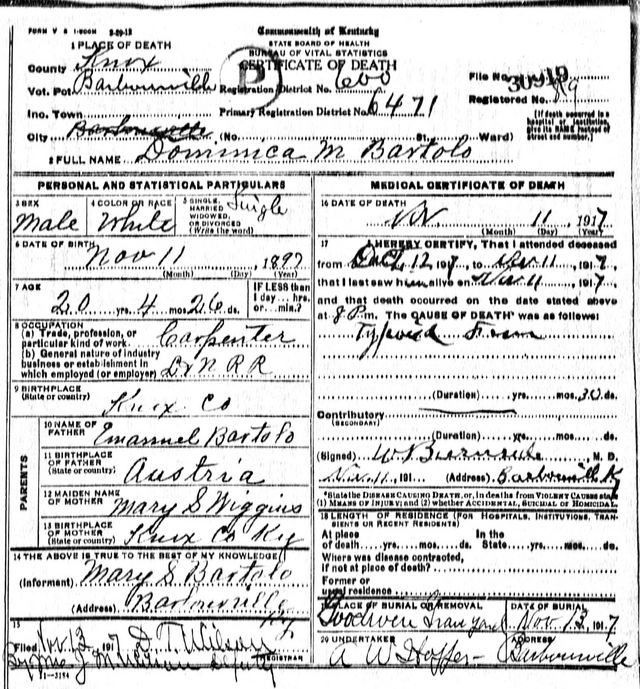 FORM V S 1-500M 3-29-13
Commonwealth of Kentucky
STATE BOARD OF HEALTH
BUREAU OF VITAL STATISTICS
CERTIFICATE OF DEATH
1 PLACE OF DEATH
County Knox
Vot. Pct. Barbourville
Registration District No. 600
File No. 30919
Inc. Town
Primary Registration District No. 6471
Registered No. 89
City Barbourville (No. St. Ward)
[If death occurred in a hospital or institution, give its NAME instead of street and number.]
2 FULL NAME Dominica M Bartolo
PERSONAL AND STATISTICAL PARTICULARS
3 SEX Male
4 COLOR OR RACE White
5 SINGLE, MARRIED WIDOWED, OR DIVORCED (Write the word) Single
6 DATE OF BIRTH Nov 11 1897
(Month) (Day) (Year)
7 AGE
20 yrs. 4 mos. 26 ds.
IF LESS than 1 day... hrs. or...min.?
8 OCCUPATION
(a) Trade, profession, or particular kind of work. Carpenter
(b) General nature of industry business or establishment in which employed (or employer) L & N R R
9 BIRTHPLACE
(State or country) Knox Co
PARENTS
10 NAME OF FATHER Emanuel Bartolo
11 BIRTHPLACE OF FATHER (State or country) Austria
12 MAIDEN NAME OF MOTHER Mary S Wiggins
13 BIRTHPLACE OF MOTHER (State or country) Knox Co Ky
14 THE ABOVE IS TRUE TO THE BEST OF MY KNOWLEDGE
(Informant) Mary S Bartolo
(Address) Barbourville Ky
15
Filed Nov. 13 1917 D. T. Wilson
REGISTRAR
By Mrs J M Wilson deputy
1-3184
MEDICAL CERTIFICATE OF DEATH
16 DATE OF DEATH
Nov 11, 1917
(Month) (Day) (Year)
17 I HEREBY CERTIFY, That I attended deceased
from Oct 12 1917, to Nov 11, 1917,
that I last saw him alive on Nov 11, 1917,
and that death occurred on the date stated above
at 8 P.m. The CAUSE OF DEATH* was as follows:
Typhoid Fever
(Duration) yrs. mos. 30 ds.
Contributory
(SECONDARY)
(Duration) yrs. mos. ds.
(Signed) M. D.
Nov. 11, 191 (Address) Barbourville Ky
*State the DISEASE CAUSING DEATH, or, in deaths from VIOLENT CAUSES state (1) MEANS OF INJURY; and (2) whether ACCIDENTAL, SUICIDAL or HOMICIDAL
18 LENGTH OF RESIDENCE (FOR HOSPITALS, INSTITUTIONS, TRANSIENTS OR RECENT RESIDENTS)
At place of death yrs. mos. ds. In the State yrs. mos. ds.
Where was disease contracted, if not at place of death?
Former or usual residence
19 PLACE OF BURIAL OR REMOVAL
DATE OF BURIAL
Nov. 13, 1917
20 UNDERTAKER
ADDRESS
A W Hopper Barbourville